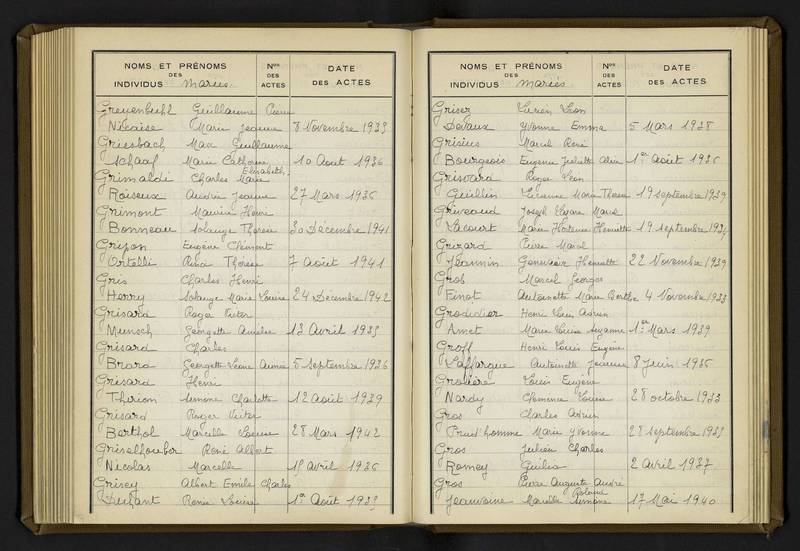 NOMS ET PRÉNOMS
DES
INDIVIDUS Mariés.
Nos
DES
ACTES
DATE
DES ACTES
Grevenbuhl Guillaume Pierre
Nicaise Marie Jeanne 7 Novembre 1933
Griesbach Max Guillaume
Schaaf Marie Catherine Elisabeth 10 Aout 1936
Grimaldi Charles Marie
Roiseux Andrée Jeanne 27 Mars 1936
Grimont Maurice Henri
Bonneau Solange Thérèse 30 Décembre 1941
Eugène Clément
Ortelli Rina Thérèse 7 Aout 1941
Gris Charles Henri
Henry Solange Marie Louise 24 Décembre 1942
Grisard Roger Victor
Munsch Georgette Amélie 13 Avril 1935
Grisard Charles
Brard Georgette Léone Aimée 5 Septembre 1936
Grisard Henri
Thirion Simone Charlotte 12 Aout 1939
Grisard Roger Victor
Berthol Marcelle Louise 28 Mars 1942
René Albert
Nicolas Marcelle Avril 1936
Grisey Albert Emile Charles
Renée Louise 1er Août 1935
NOMS ET PRÉNOMS
DES
INDIVIDUS Mariés.
Nos
DES
ACTES
DATE
DES ACTES
Griser Lucien Léon
Devaux Yvonne Emma 5 Mars 1938
Grisius Marcel René
Bourgeois Eugenie Juliette 1er Août 1936
Roger Léon
Guillin Lucienne Marie Thérèse 19 Septembre 1939
Griveaud Joseph Marcel
Lacourt Marie Hortense Henriette 19 Septembre
Grizard Pierre Marcel
Jeannin Geneviève Henriette 22 Novembre 1939
Grob Marcel Georges
Finot Antoinette Marie Berthe 4 Novembre 1933
Grodidier Henri Adrien
Amet Marie Louise Suzanne 1er Mars 1939
Groff Henri Louis Eugène
Laffargue Antoinette Jeanne 8 Juin 1936
Louis Eugène
Nardy Clémence Louise 28 octobre 1933
Gros Charles Adrien
Prud'homme Marie Yvonne 28 Septembre 1935
Gros Julien Charles
Romey Giulia 2 Avril 1937
Gros Pierre Auguste André Roland
Jeanvoine Marcelle Simone 17 Mai 1940